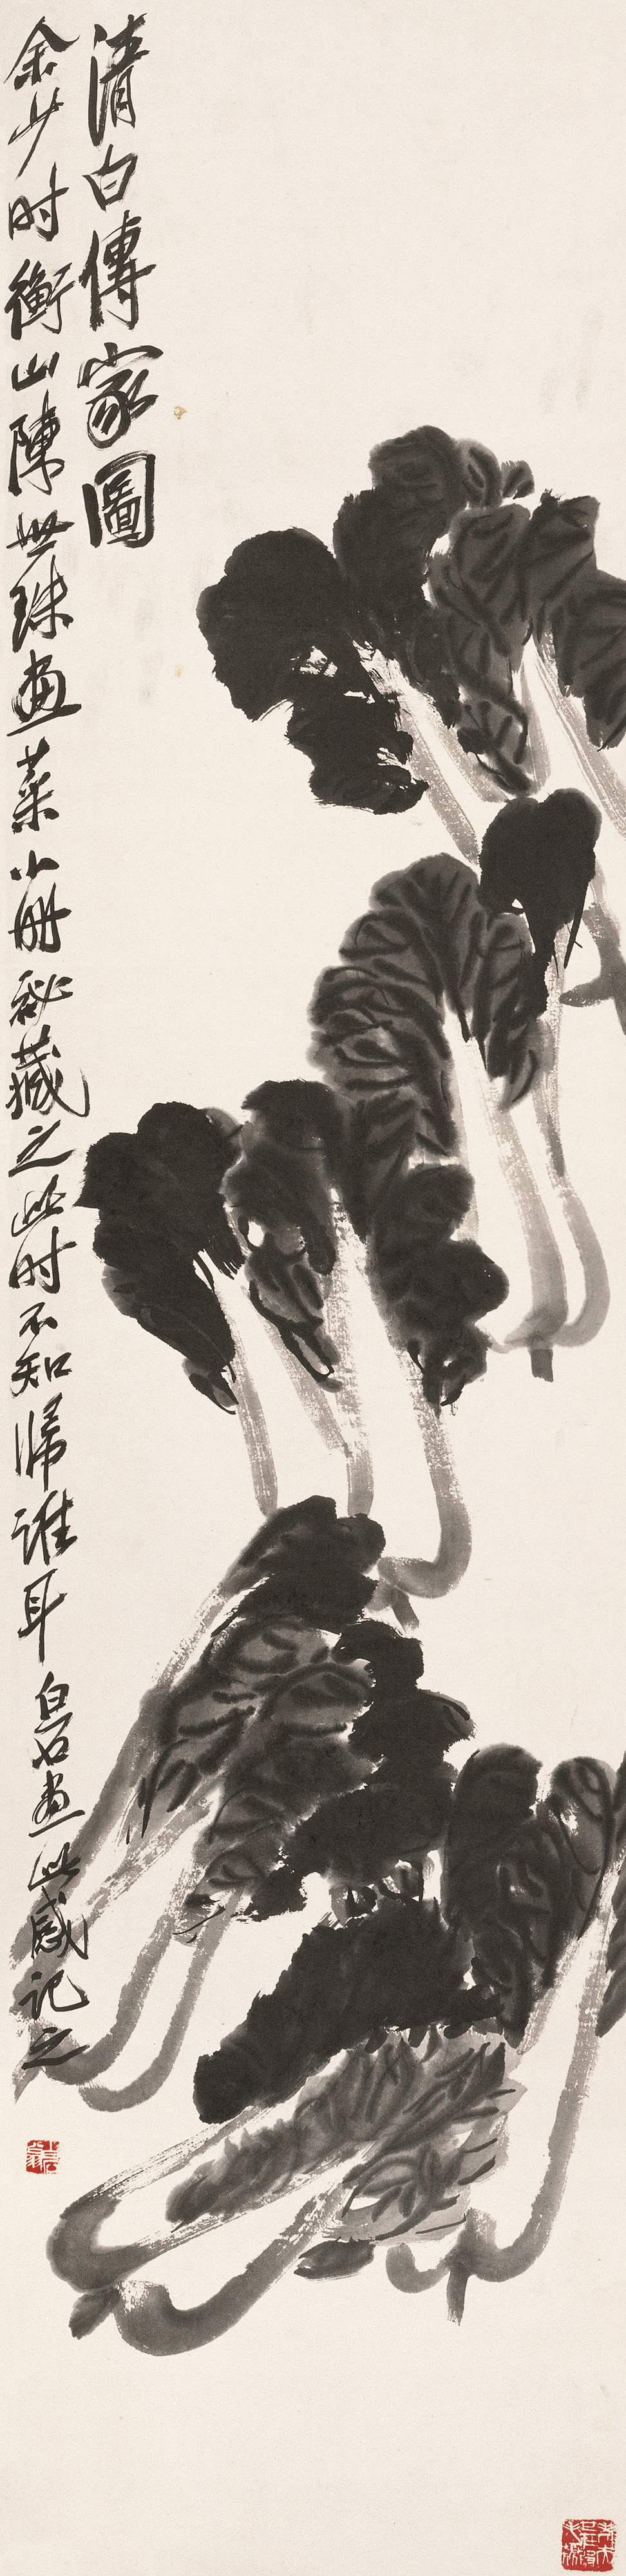 清白傳家圖
余少时衡山陳無珠畫菜小册秘藏之此时不知歸誰耳白石畫此感記之